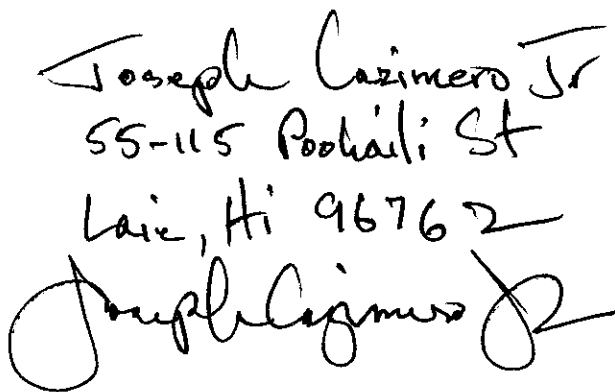 Joseph Cazimero Jr
55-115 Poohaili St
Laie, Hi 96762
Joseph Cazimero Jr